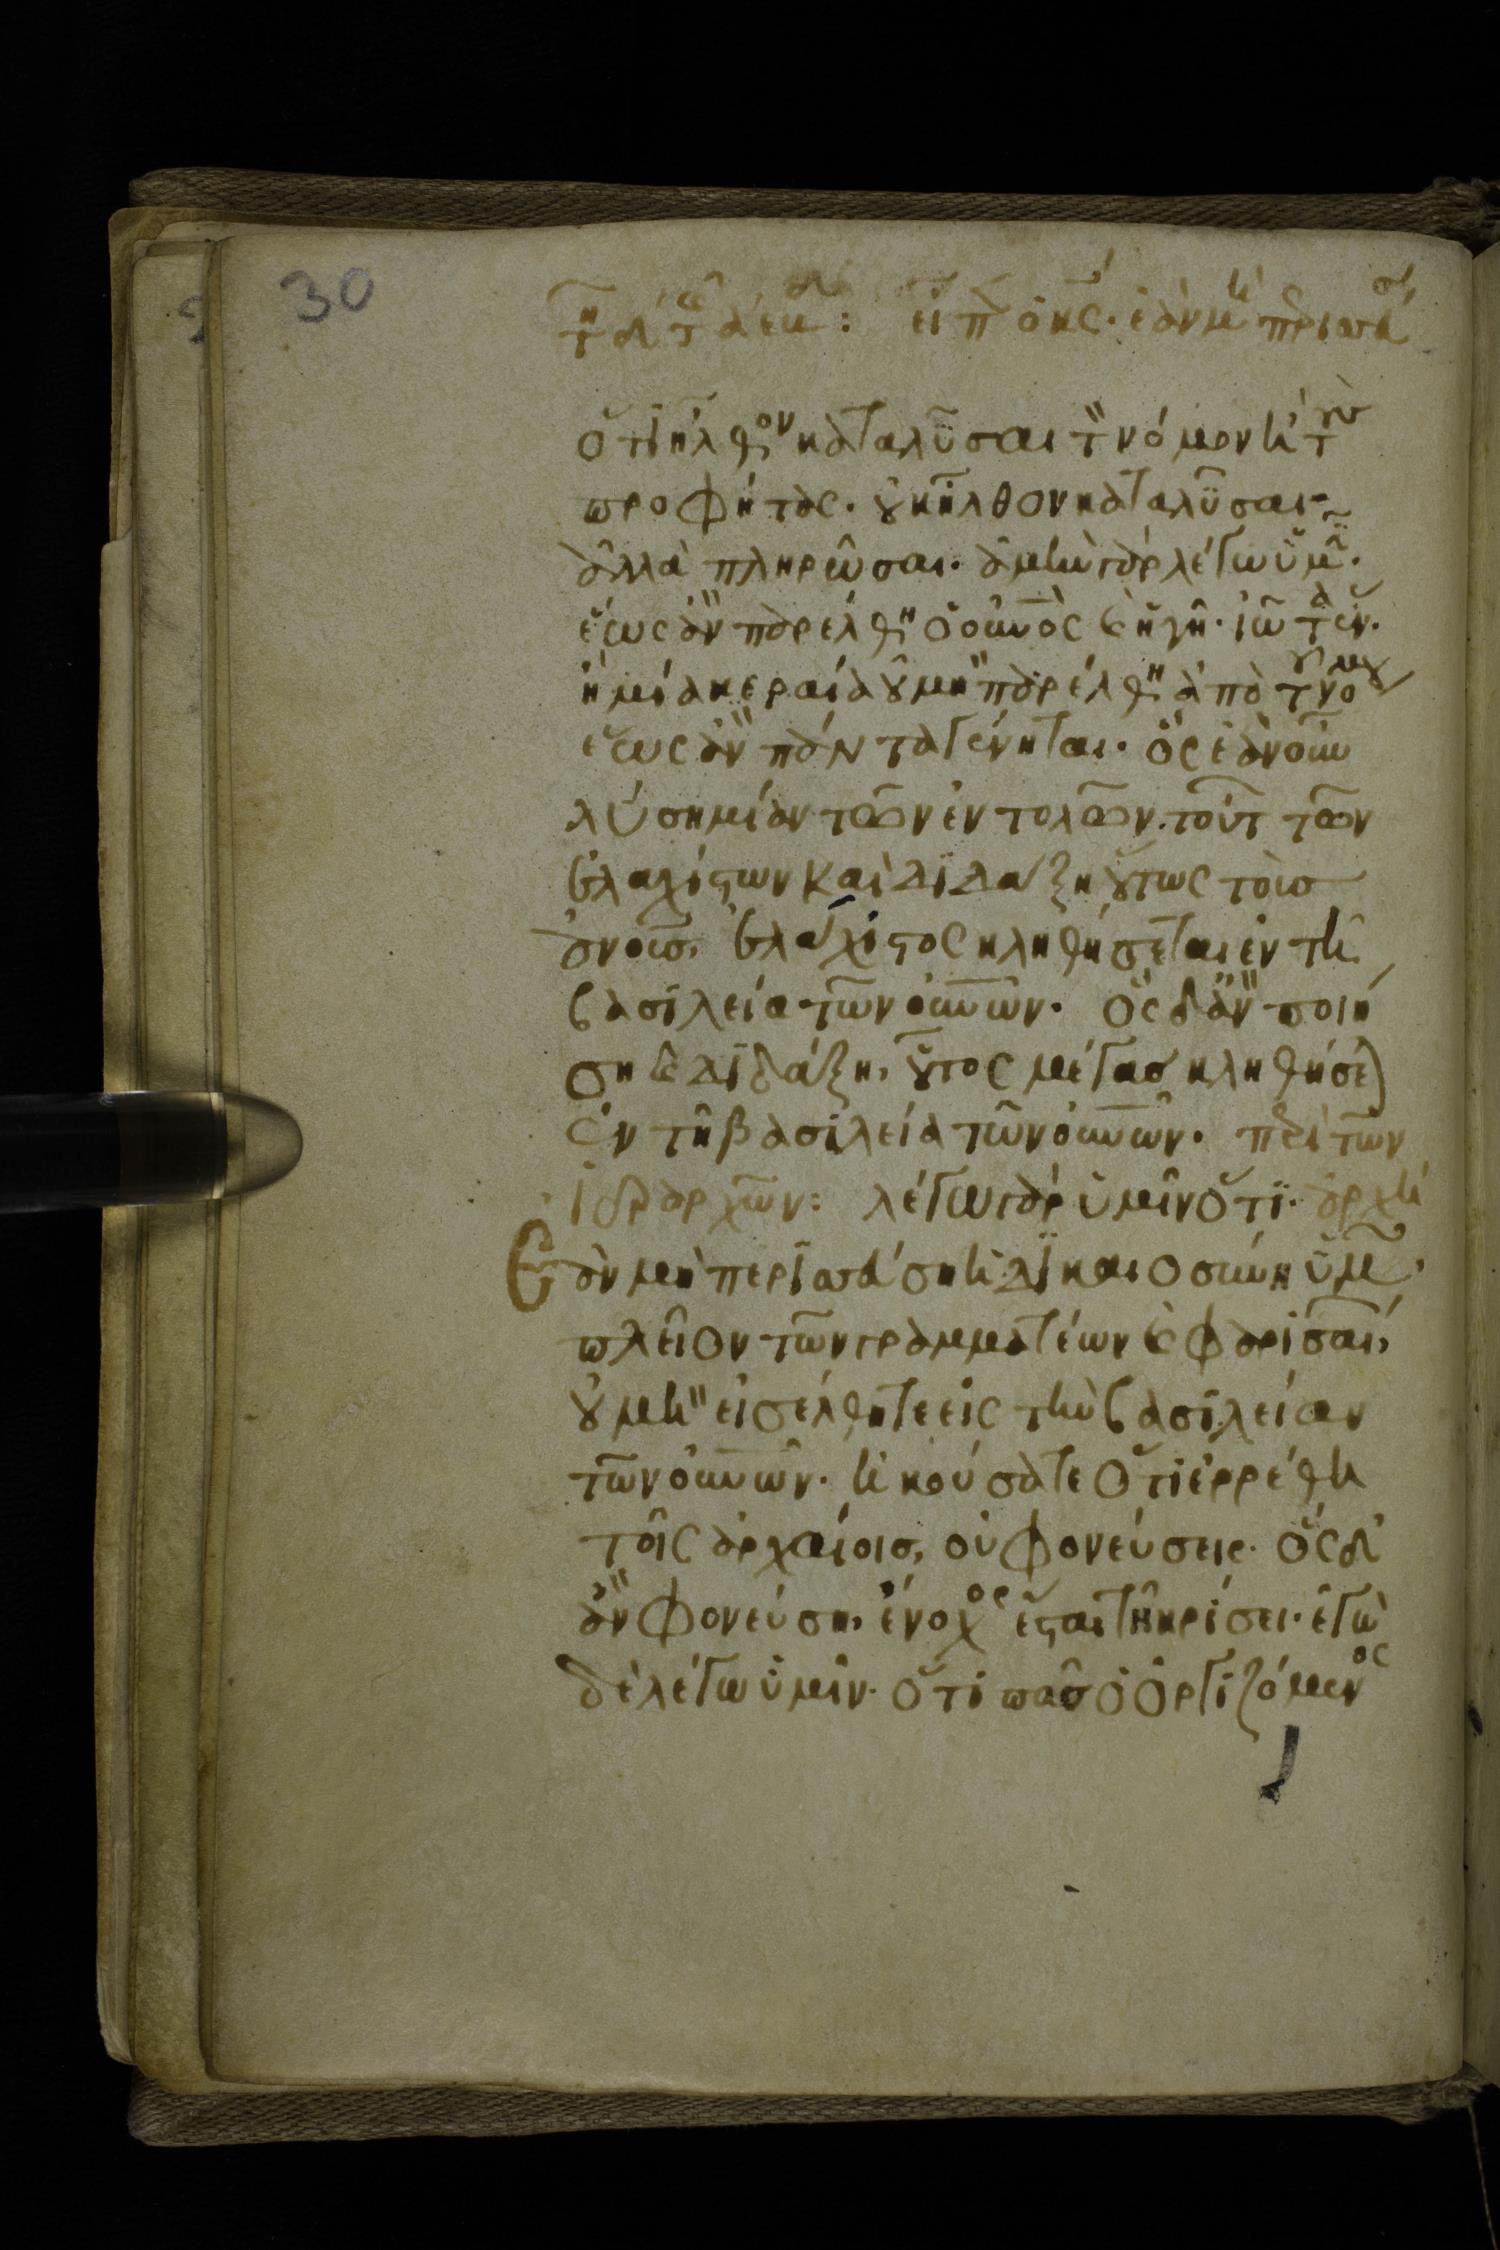 30
τῆ δ´ τ αεκ : εἶπ ὁ κς· ἐὰν μὴ περισσ
ὅτι ἦλθον καταλῦσαι τ νόμον κ τοὺ
προφήτας· οὐκ ἦλθον καταλῦσαι
ἀλλὰ πληρῶσαι· ἀμὴν γὰρ λέγω ὑμ·
ἕως ἂν παρέλθη ὁ οὐνὸς κ ἡ γῆ· ἰῶτα ἓν·
ἢ μία κεραία οὐ μὴ παρέλθη ἀπὸ τοῦ νόμου
ἕως ἂν πάντα γένηται· ὃς ἐὰν οὖν
λύση μίαν τῶν ἐντολῶν τούτ τῶν
ἐλαχίστων καὶ διδάξη οὕτως τοὺσ
ἀνουσ, ἐλάχιστος κληθήσεται ἐν τῆ
βασιλεία τῶν οὐνῶν· ὃς δ ἂν ποιή
ση κ διδάξη, οὗτος μέγασ κληθήσε
ἐν τῆ βασιλεία τῶν οὐνῶν· περὶ τῶν
ἱεραρχῶν: λέγω γὰρ ὑμῖν ὅτι· ἀρχὴ
Ἐὰν μὴ περισσεύση ἡ δικαιοσύνη ὑμ
πλεῖον τῶν γραμματέων κ φαρισαί,
οὐ μὴ εἰσέλθητε εἰς τὴν βασιλείαν
τῶν οὐνῶν· ἠκούσατε ὅτι ἐρρέθη
τοῖς ἀρχαίοισ, οὐ φονεύσεις· ὃς δ´
ἂν φονεύση, ἔνοχος ἔσται τῆ κρίσει· ἐγὼ
δὲ λέγω ὑμῖν· ὅτι πᾶσ ὁ ὀργιζόμενος